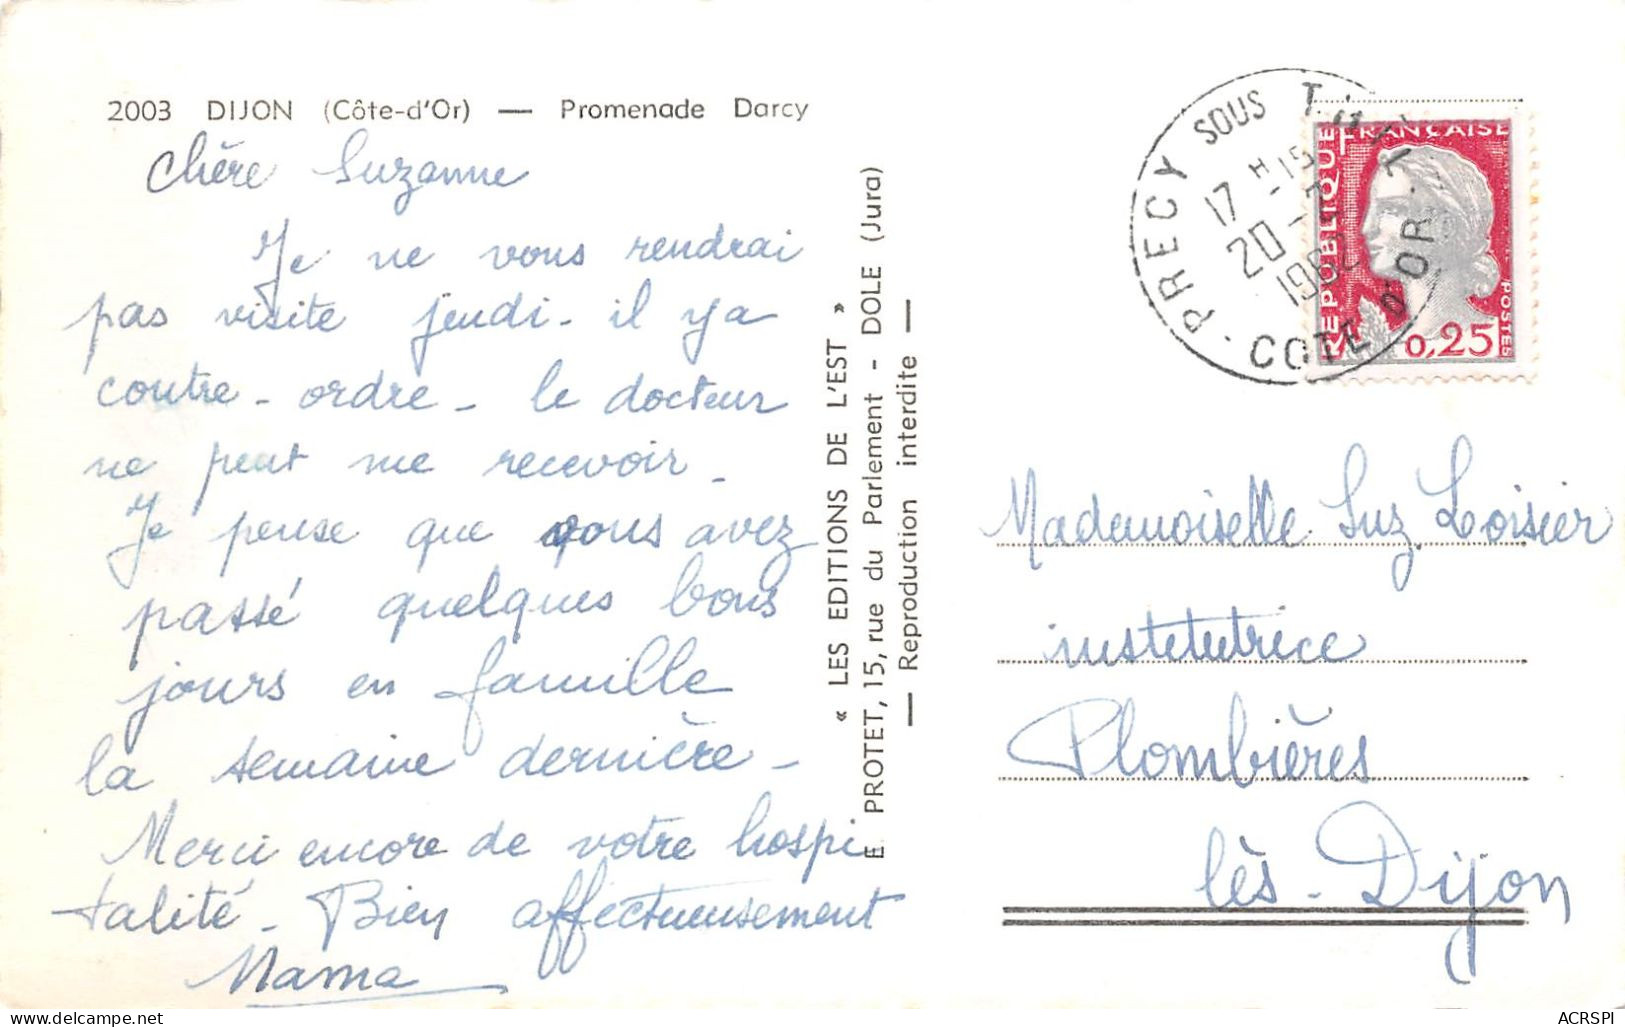 2003 DIJON (Côte-d'Or) — Promenade Darcy
Chère Suzanne
Je ne vous rendrai
pas visite jeudi - il y a
contre-ordre - le docteur
ne peut me recevoir -
Je pense que vous avez
passé quelques bons
jours en famille
la semaine dernière -
Merci encore de votre hospi
talité - Bien affectueusement
Mama
« LES EDITIONS DE L'EST »
E. PROTET, 15, rue du Parlement - DOLE (Jura)
— Reproduction interdite —
PRECY SOUS
17 H 15
20 -
COTE D'OR
REPUBLIQUE FRANÇAISE
POSTES
0,25
Mademoiselle Suz. Loisier
institutrice
Plombières
lès-Dijon
www.delcampe.net
ACRSPI